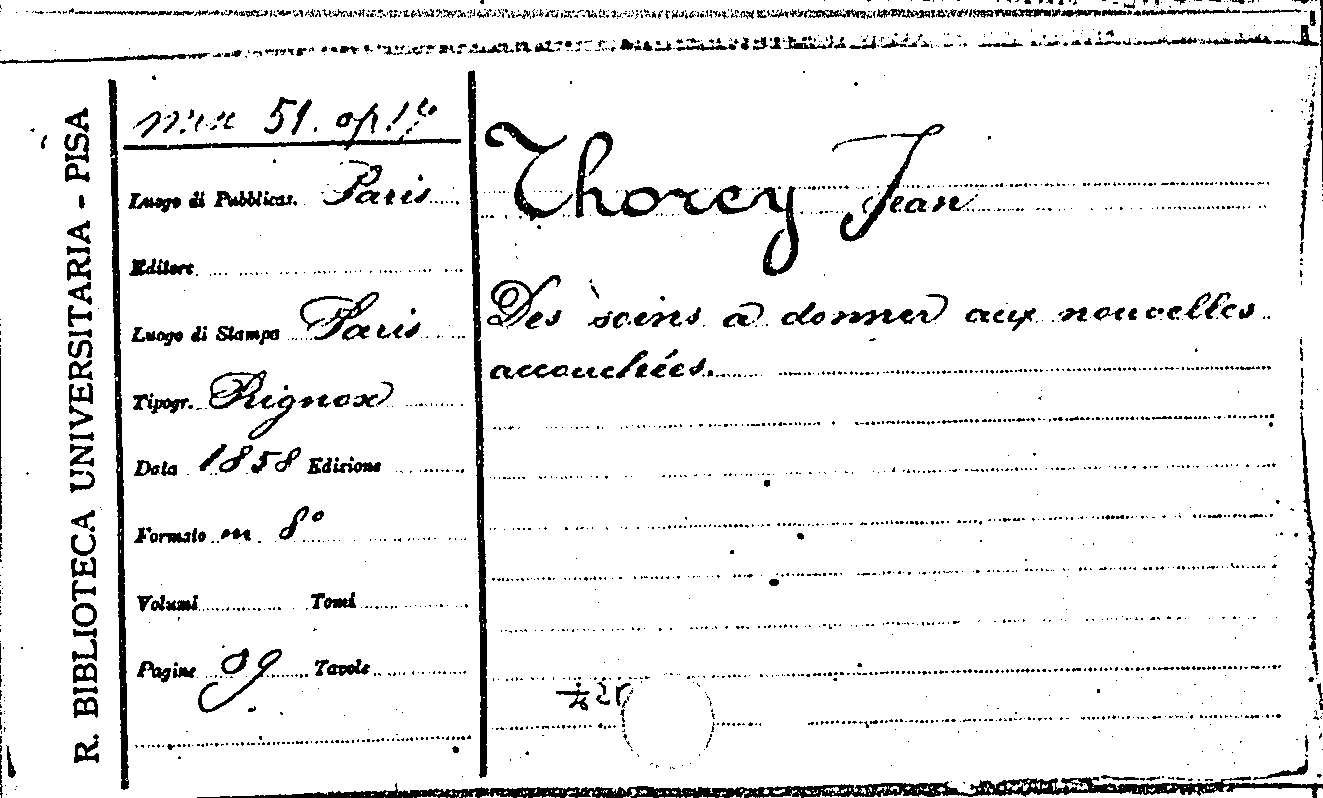 R. BIBLIOTECA UNIVERSITARIA - PISA
51. op. 17
Luogo di Pubblicaz. Paris
Editore
Luogo di Stampa Paris
Tipogr. Rignox
Data 1858 Edizione
Formato in 8°
Volumi Tomi
Pagine 39 Tavole
Thorey Jean
Des soins à donner aux nouvelles
accouchées.